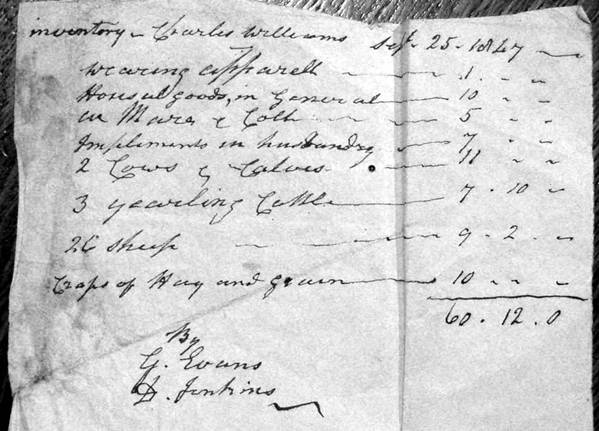 inventory - Charles Williams Sept. 25 - 1847
wearing apparell 1 " "
Housal goods, in General 10 " "
a Mare & Colt 5 " "
Implements in husbandry 7 " "
2 Cows & Calves 11 " "
3 yearling Cattle 7 - 10 "
26 sheep 9 - 2 "
Craps of Hay and grain 10 " "
60 - 12 - 0
By
G. Evans
D. Jenkins